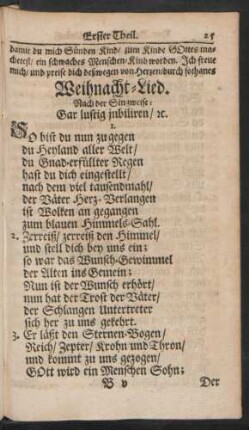 Erster Theil. 25
damit du mich Sünden Kind/ zum Kinde GOttes ma-
chetest/ ein schwaches Menschen-Kind worden. Ich freue
mich/ und preise dich deßwegen von Hertzen durch folhanes
Weihnacht-Lied.
Nach der Singweise:
Gar lustig jubiliren/ ꝛc.
1.
SO bist du nun zugegen
du Heyland aller Welt/
du Gnad-erfüllter Regen
hast du dich eingestellt/
nach dem viel tausendmahl/
der Väter Hertz-Verlangen
ist Wolken an gegangen
zum blauen Himmels-Sahl.
2. Zerreiß/ zerreiß den Himmel/
und stell dich bey uns ein;
so war das Wunsch-Gewimmel
der Alten ins Gemein;
Nun ist der Wunsch erhört/
nun hat der Trost der Väter/
der Schlangen Untertreter
sich her zu uns gekehrt.
3. Er läßt den Sternen-Bogen/
Reich/ Zepter/ Krohn und Thron/
und kommt zu uns gezogen/
GOtt wird ein Menschen Sohn;
B v Der